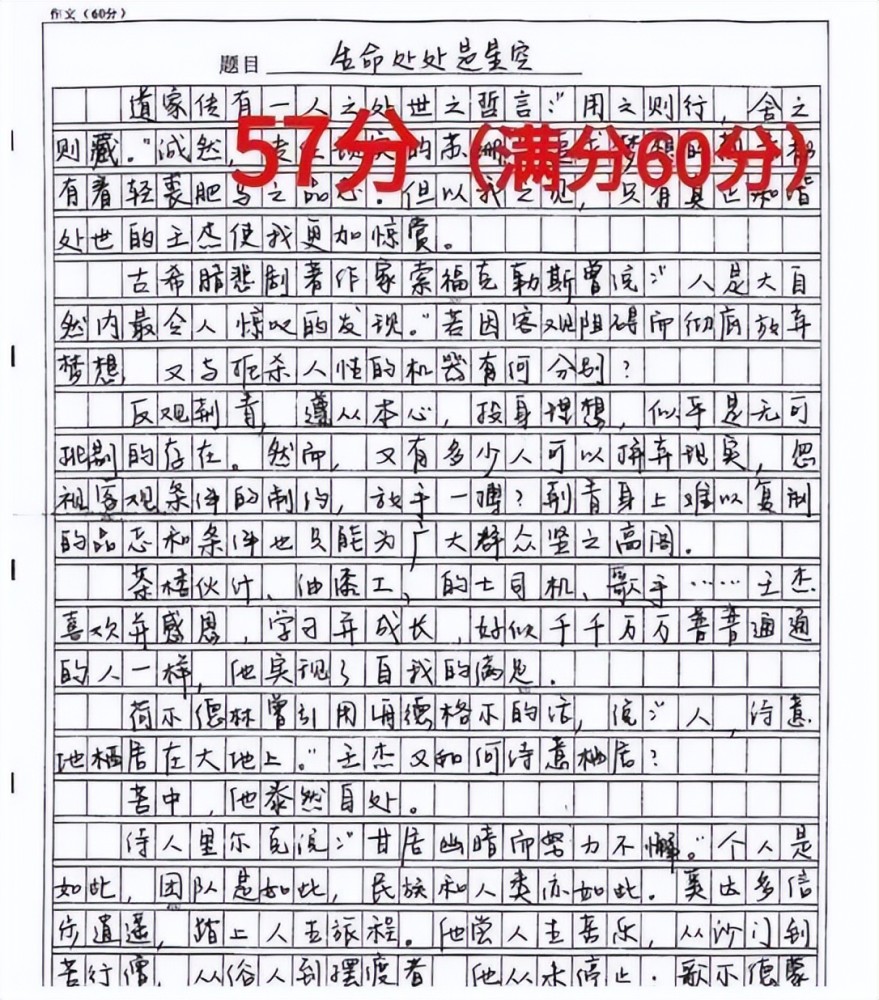 作文(60分)
题目 生命处处是星空
道家传有一人之处世之哲言:"用之则行,舍之
57分(满分60分)
则藏。"诚然,的苏
有着轻裘肥马之品志.但以我之见,只有真正和谐
处世的王杰使我更加惊赏。
古希腊悲剧著作家索福克勒斯曾说:"人是大自
然内最令人惊叹的发现。"若因客观阻碍而彻底放弃
梦想,又与扼杀人性的机器有何分别?
反观荆青,遵从本心,投身理想,似乎是无可
挑剔的存在。然而,又有多少人可以摒弃现实,忽
视客观条件的制约,放手一搏?荆青身上难以复制
的品志和条件也只能为广大群众坚之高阁.
茶楼伙计、油漆工、的士司机、歌手……王杰
喜欢并感恩,学习并成长,好似千千万万普普通通
的人一样,他实现了自我的满足.
荷尔德林曾引用海德格尔的话,说:"人,诗意
地栖居在大地上。"王杰又如何诗意栖居?
苦中,他泰然自处。
诗人里尔克说:"甘居幽暗而努力不懈。"个人是
如此,团队是如此,民族和人类亦如此.奚达多信
步逍遥,踏上人生旅程。他尝人生喜乐,从沙门到
苦行僧,从俗人到摆渡者 他从未停止.歌尔德蒙